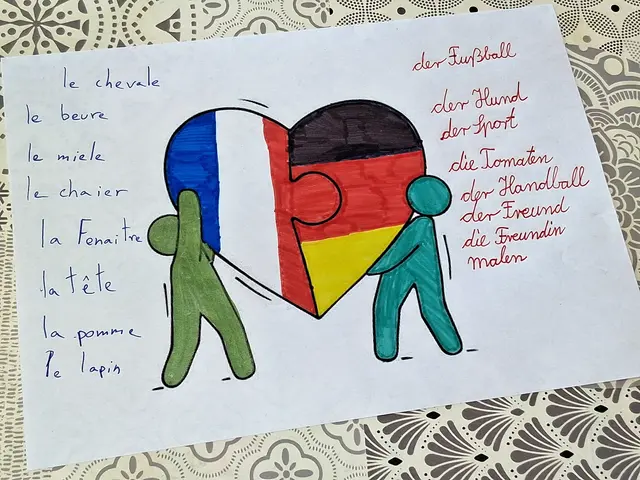 le chevale
le beure
le miele
le chaier
la Fenaitre
la tête
la pomme
le lapin
der Fußball
der Hund
der Sport
die Tomaten
der Handball
der Freund
die Freundin
malen